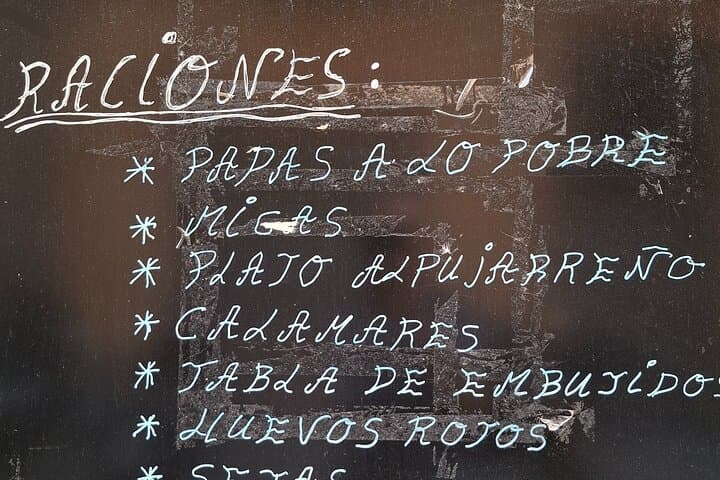 RACIONES:
* PAPAS A LO POBRE
* MIGAS
* PLATO ALPUJARREÑO
* CALAMARES
* TABLA DE EMBUTIDOS
* HUEVOS ROTOS
* SETAS